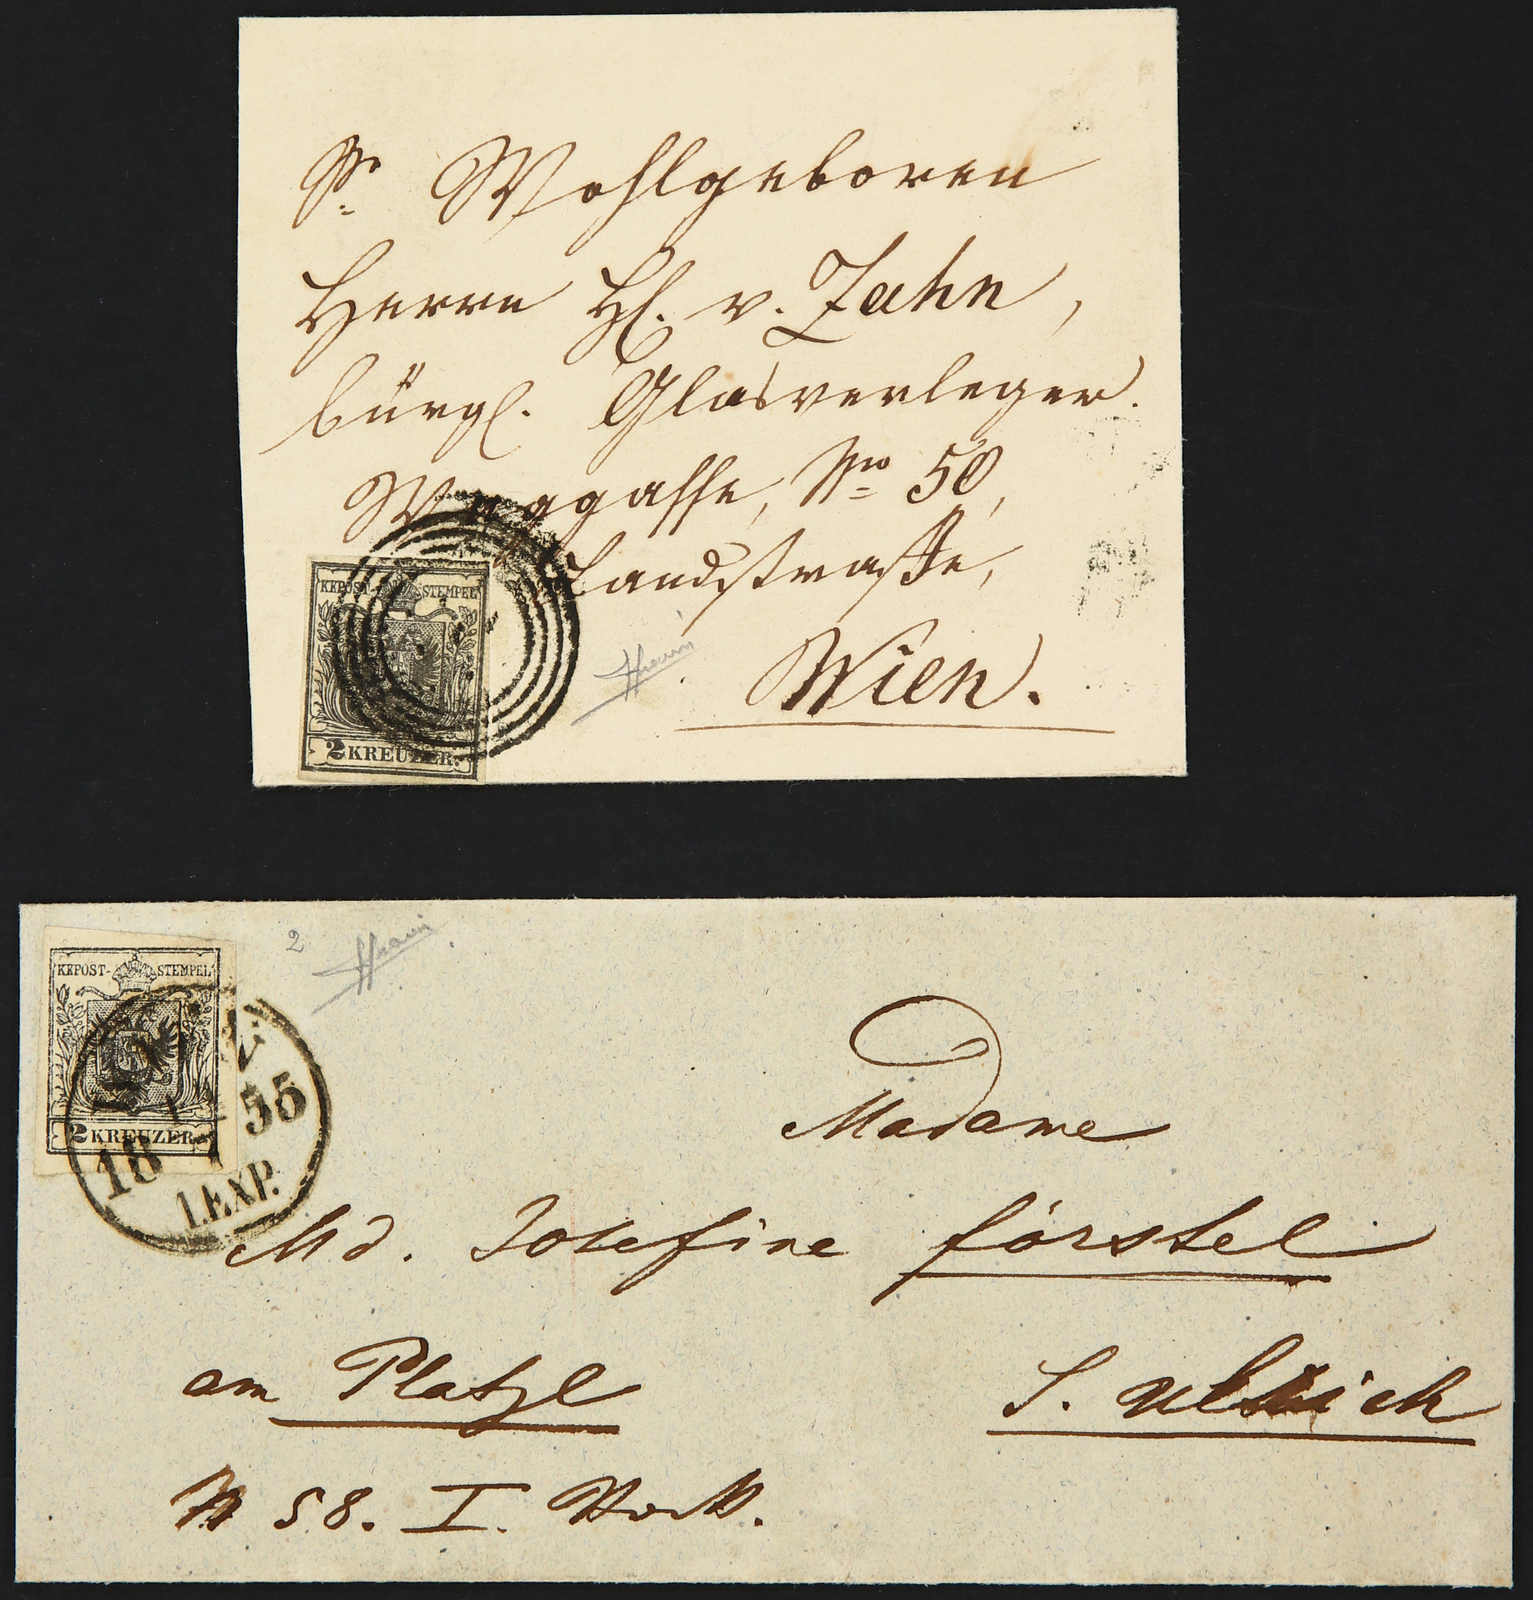 Sr. Wohlgeboren
Herrn Hl. v. Zahn,
bürgl. Glasverleger.
gasse, No 50,
Landstrasse,
KKPOST-STEMPEL
2 KREUZER.
Wien.
2
KKPOST-STEMPEL
2 KREUZER.
18 55
1.EXP.
Madame
Md. Josefine Förstel
am Platzl
S. Ulrich
N 58. I. Stock.